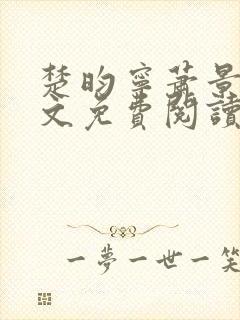 楚昀寧蕭景
文免費閱讀
一夢一世一笑